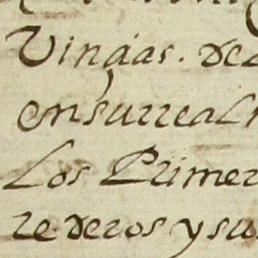 Vinãas. de
en su real
Los Primer
re deros y su